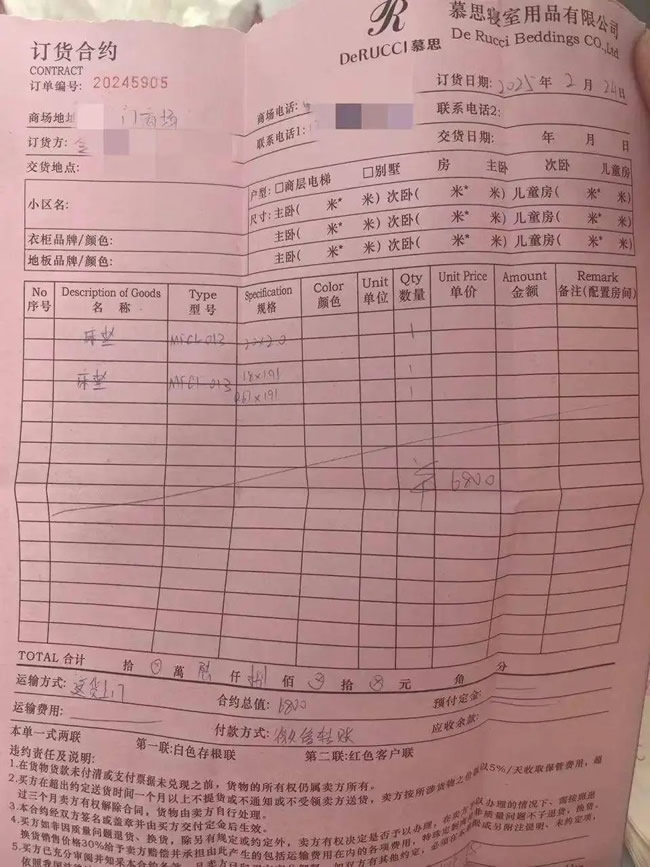 R
DeRUCCI 慕思
慕思寝室用品有限公司
De Rucci Beddings CO.,Ltd
订货合约
CONTRACT
订单编号: 20245905
订货日期: 2025 年 2 月 24日
商场地址
商场电话:
联系电话2:
订货方:
联系电话1:
交货日期: 年 月 日
交货地点:
户型: □商层电梯 □别墅 房 主卧 次卧 儿童房
小区名:
尺寸: 主卧( 米* 米) 次卧( 米* 米) 儿童房( 米* 米)
主卧( 米* 米) 次卧( 米* 米) 儿童房( 米* 米)
衣柜品牌/颜色:
主卧( 米* 米) 次卧( 米* 米) 儿童房( 米* 米)
地板品牌/颜色:
No Description of Goods Type Specification Color Unit Qty Unit Price Amount Remark
序号 名 称 型 号 规格 颜色 单位 数量 单价 金额 备注(配置房间)
床垫 MFC1-013 1
床垫 MFC1-013 18×191 1
×191 1
¥ 6800
TOTAL 合计 拾 萬 仟 捌 佰 拾 元 角 分
运输方式: 送货上门
合约总值: 6800
预付定金:
运输费用:
付款方式: 微信转账
应收余款:
本单一式两联 第一联:白色存根联 第二联:红色客户联
违约责任及说明:
1.在货物货款未付清或支付票据未兑现之前，货物的所有权仍属卖方所有。
2.买方在超出约定送货时间一个月以上不提货或不通知或不受领卖方送货，卖方按所涉货物之价款以5%/天收取保管费用；超
过三个月卖方有权解除合同，货物由卖方自行处理。
3.本合约经双方签名或盖章并由买方交付定金后生效。
4.买方如非因质量问题退货、换货，除另有规定或约定外，卖方有权决定是否予以办理，在卖方
换货销售价格30%给予卖方赔偿并承担由此产生的包括运输费用在内的各项费用，特殊定制
5.买方已充分审阅并
依照我国法律